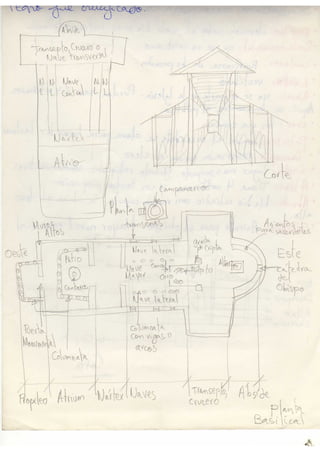 que crucificado.
Abside
Transepto, Crucero o
Nave transversal
N N Nave N N
L L Central L L
Nártex
Atrio
Corte
Campanario
Planta
Muros
Altos
Nave lateral
Asientos
para sacerdotes
Oeste
Patio
Nave
Mayor
Altar
Este
Catedra
de
Obispo
Cantaro
Nave lateral
Puerta
Monumental
Columnata
Columnata
con vigas o
arcos
Propileo
Atrium
Nártex
Naves
Transepto
crucero
Abside
Planta
Basilical